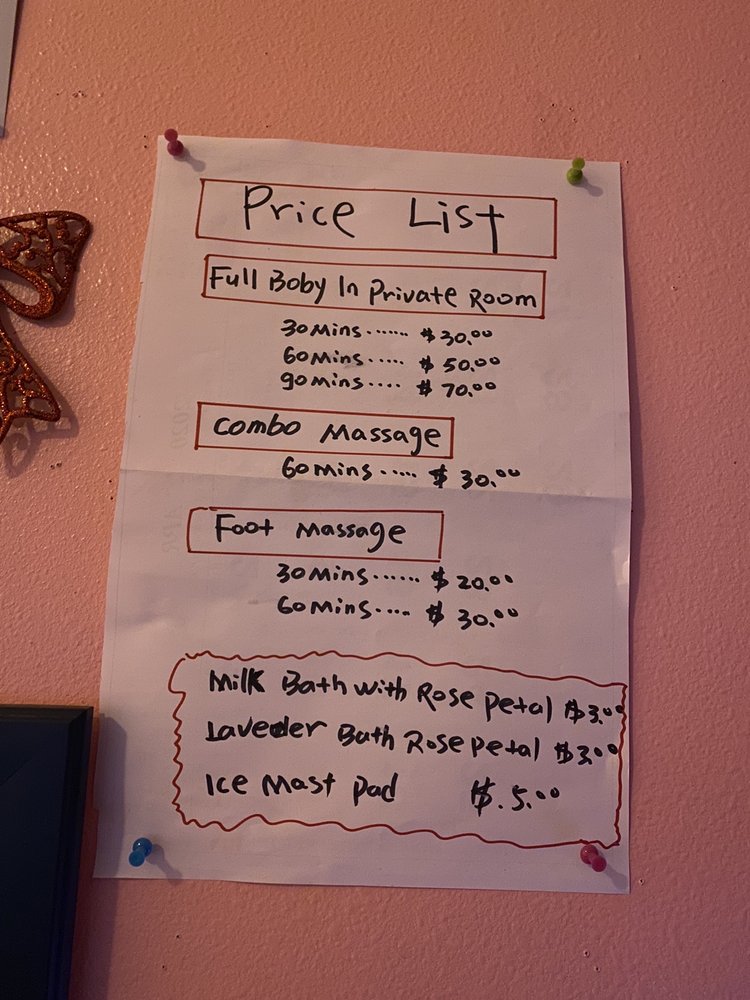 Price List
Full Boby In Private Room
30 Mins...... $30.00
60 Mins..... $50.00
90 mins.... $70.00
Combo Massage
60 Mins..... $30.00
Foot Massage
30 Mins...... $20.00
60 Mins.... $30.00
Milk Bath with Rose petal $3.00
Laveder Bath Rose petal $3.00
Ice Mast pad $.5.00